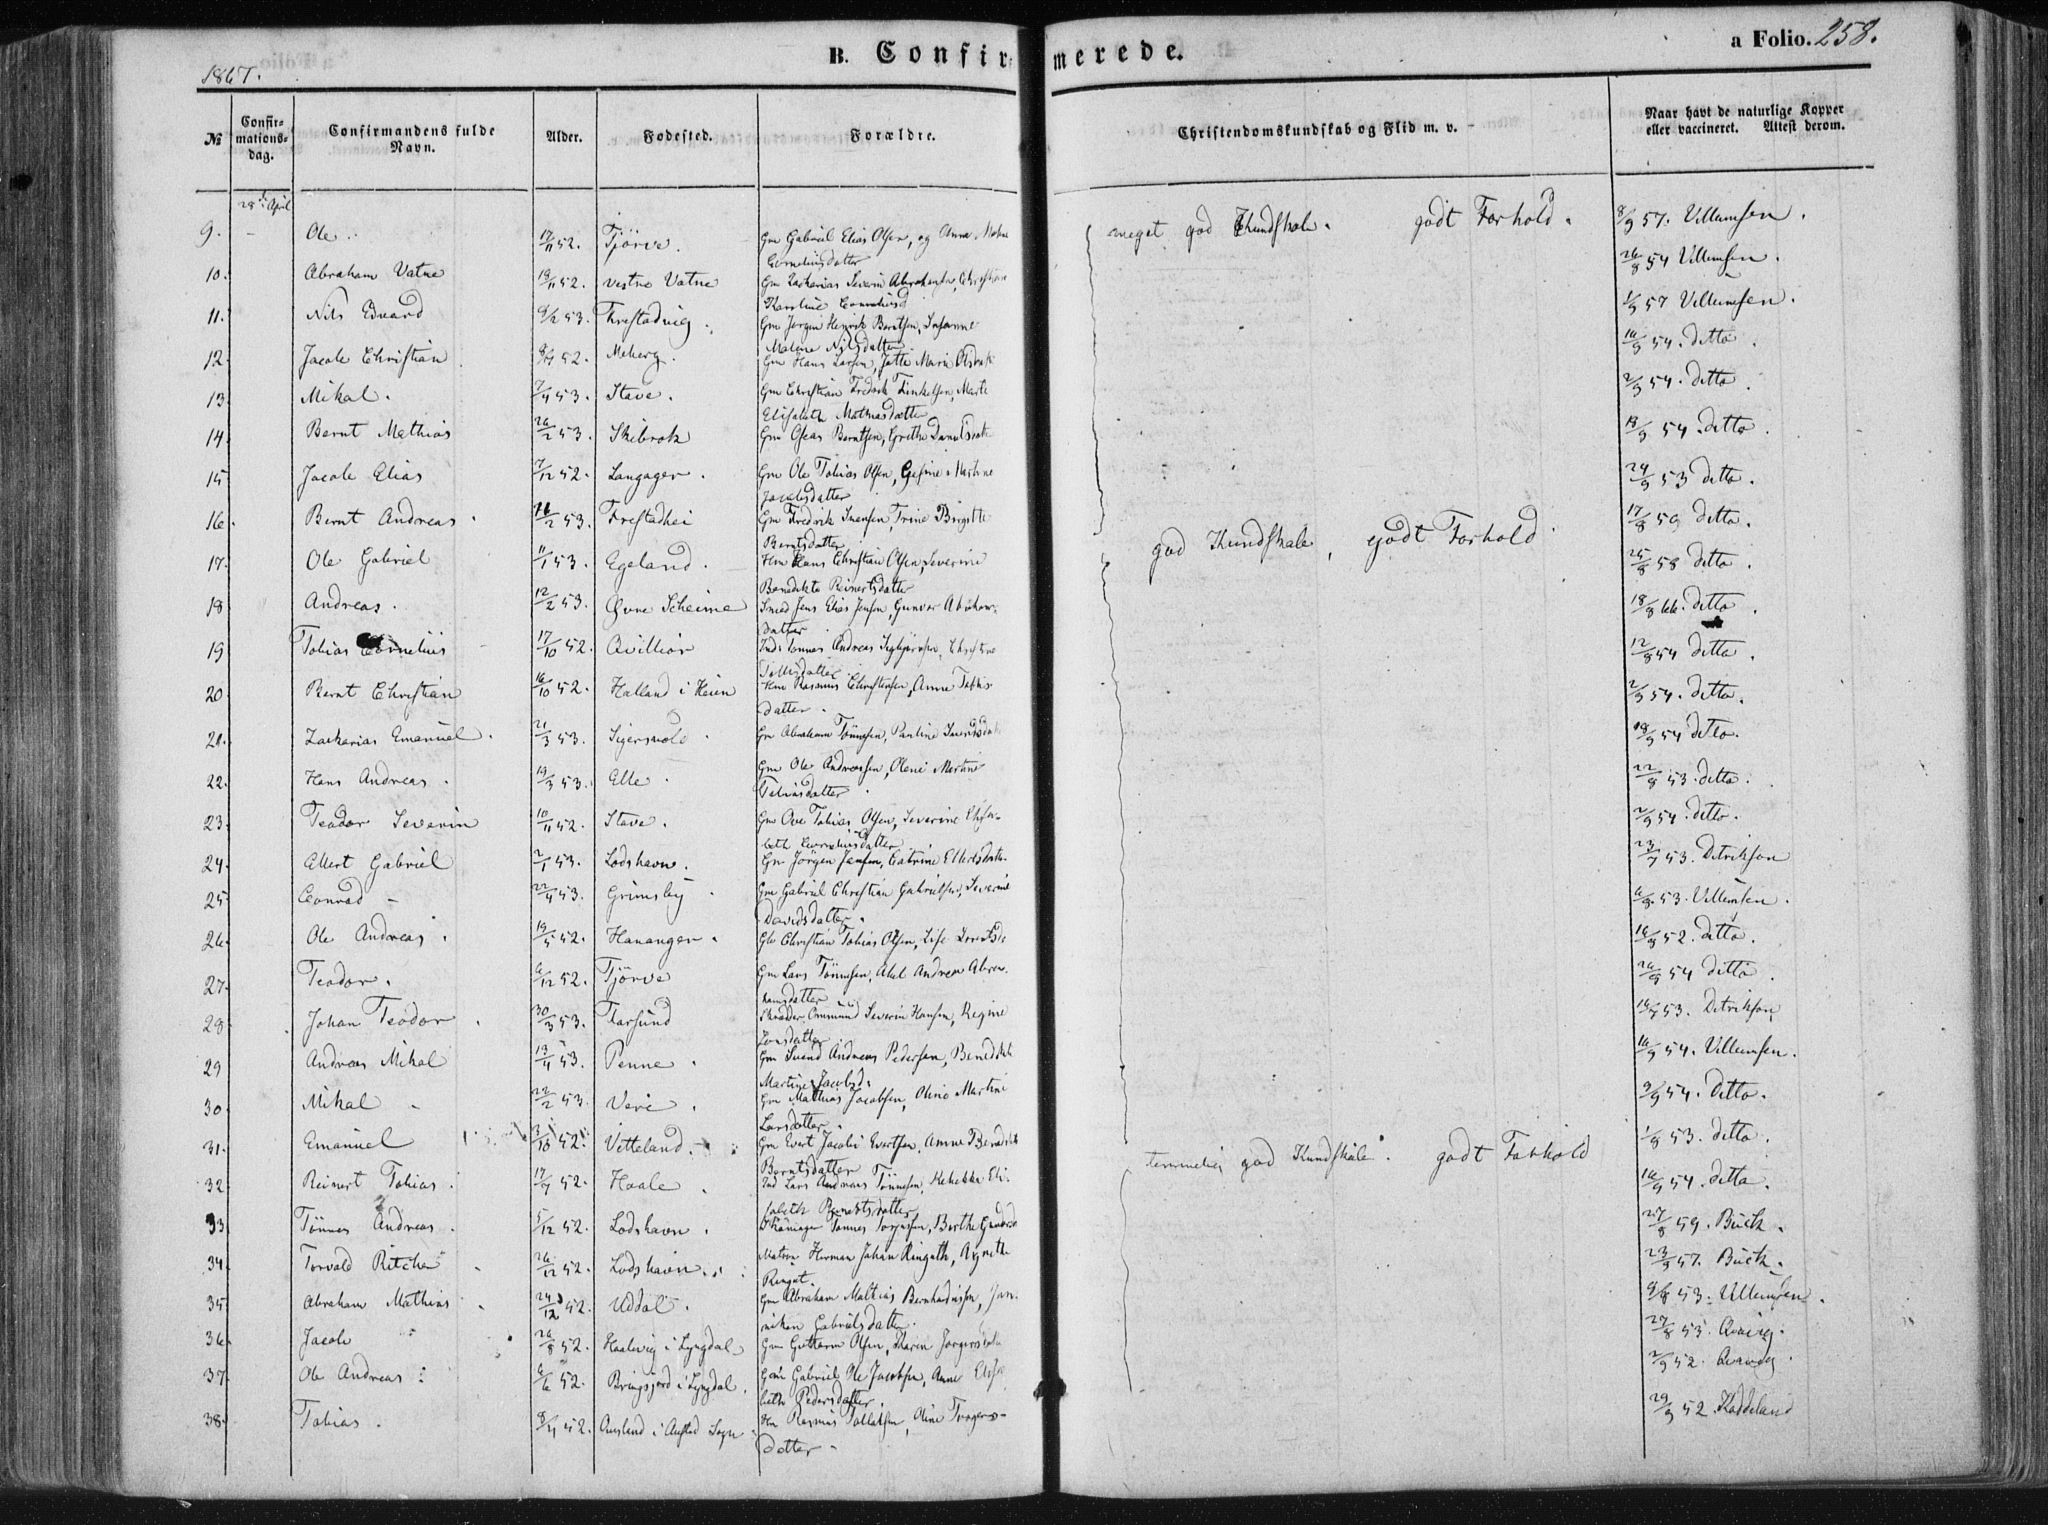 1867.
B. Confirmerede.
a Folio. 258.
№ Confirmations-dag. Confirmandens fulde Navn. Alder. Fødested. Forældre. Christendomskundskab og Flid m. v. Naar havt de naturlige Kopper eller vaccineret. Attest derom.
28de April
9. Ole 17/11 52. Tjörve. Gm Gabriel Elias Olsen, og Anne Malene Corneliusdatter meget god Kundskab. godt Forhold. 8/9 57. Villumsen.
10. Abraham Vatne 19/11 52. vestre Vatne Gm Zacharias Severin Abrahamsen, Christiane Karoline Corneliusd 26/8 54 Villumsen.
11. Nils Edvard 9/2 53. Frestadvig. Gm Jørgen Henrik Berntsen, Malene Nilsdatter 1/9 57 Villumsen.
12. Jacob Christian 52. Meberg. Gm Hans Larsen, Jutte Marie Olsdatt 16/9 54. ditto.
13. Mikal. 7/4 53. Stave. Gm Christian Fredrik Marte Elisabeth Mathiasdatter 2/9 54. ditto.
14. Bernt Mathias 26/2 53. Skibrok Gm Oseas Berntsen, Grethe Danielsdatt 18/9 54. ditto.
15. Jacob Elias 7/12 52. Langager. Gm Ole Tobias Olsen, Gesine Martine Jacobsdatter 24/9 53 ditto.
16. Bernt Andreas 16/2 53. Frestadhei Gm Fredrik Svensen, Trine Birgitte Berntsdatter 17/8 59 ditto.
17. Ole Gabriel 11/1 53. Egeland. Hm Hans Christian Olsen, Severine Benedikte Reinertsdatter god Kundskab, godt Forhold 25/8 58 ditto.
18 Andreas. 12/2 53. Øvre Scheime Smed Jens Elias Jensen, Gunvor Abraham-datter 18/8 66. ditto.
19 Tobias Cornelius 17/10 52. Qvilliór Inds Tønnes Andreas Christine Tollisdatter 12/8 54 ditto.
20 Bernt Christian 16/10 52. Halland i Heien Hm Rasmus Christensen, Anne datter. 2/9 54. ditto.
21. Zacharias Emanuel. 21/3 53. Sigersvold Gm Abraham Tönnesen, Pauline 18/9 54 ditto.
22. Hans Andreas. 19/3 53. Elle. Gm Ole Andreassen, Olene Martine Tobiasdatter 22/8 53. ditto.
23. Teodor Severin 10/11 52. Stave. Gm Ove Tobias Olsen, Severine Elisabeth Corneliusdatter 2/9 54. ditto.
24. Ellert Gabriel 2/1 53. Lodshavn. Gm Jörgen Jensen, Catrine Ellertsdatt. 23/7 53. Ditrikson
25. Conrad 22/4 53. Grimsby Gm Gabriel Christian Gabrielsen, Severine Davidsdatter. 6/8 53. Villumsen.
26. Ole Andreas. 19/5 52. Hananger. Gm Christian Tobias Olsen, Lise 16/8 52. ditto.
27. Teodor. 6/12 52. Tjörve Gm Lars Tönnesen, Abel Andrea Abrahamsdatter 26/9 54 ditto.
28 Johan Teodor 30/3 53. Farsund Skræder Ommund Severin Hansen, Regine 53. Ditrikson
29 Andreas Mikal 19/4 53. Penne. Gm Svend Andreas Pedersen, Benedikte Martine Jacobsd. 16/9 54. Villumsen.
30. Mikal 22/2 53. Vere. Gm Mathias Jacobsen, Oline Martine Larsdatter. 9/9 54. Ditto.
31. Emanuel 3/10 52. Vetteland. Gm Evert Jacobi Evertsen, Anne Berntsdatter 1/8 53. ditto.
32 Reinert Tobias. 17/9 52. Haale. Ind Lars Andreas Tönnesen, Rebekka Elisabeth Berntsdatter temmelig god Kundskab. godt Forhold 16/9 54. ditto.
33. Tönnes Andreas. 5/12 52. Lodshavn. Tønnes Torgessen, Berthe 27/8 59. Buch.
34. Torvald Ritcher 26/12 52. Lodshavn. Matros Herman Johan Ringuth, Agnethe Ringut. 23/9 57. Buch.
35. Abraham Mathias 24/12 52. Uddal. Gm Abraham Mathias Bernhardussen, Janniken Gabrielsdatter. 9/8 53. Villumsen.
36. Jacob 26/8 52. Haalvig i Lyngdal Gm Guttorm Olsen, Karen Jörgensdatt 27/8 53.
37. Ole Andreas 6/6 52. Bringsjord i Lyngdal. Gm Gabriel Ole Jacobsen, Anne Elisabeth Pedersdatter. 2/9 52.
38. Tobias. 8/4 52. i Sogn Hm Rasmus Tollaksen, Oline datter. 29/9 52.